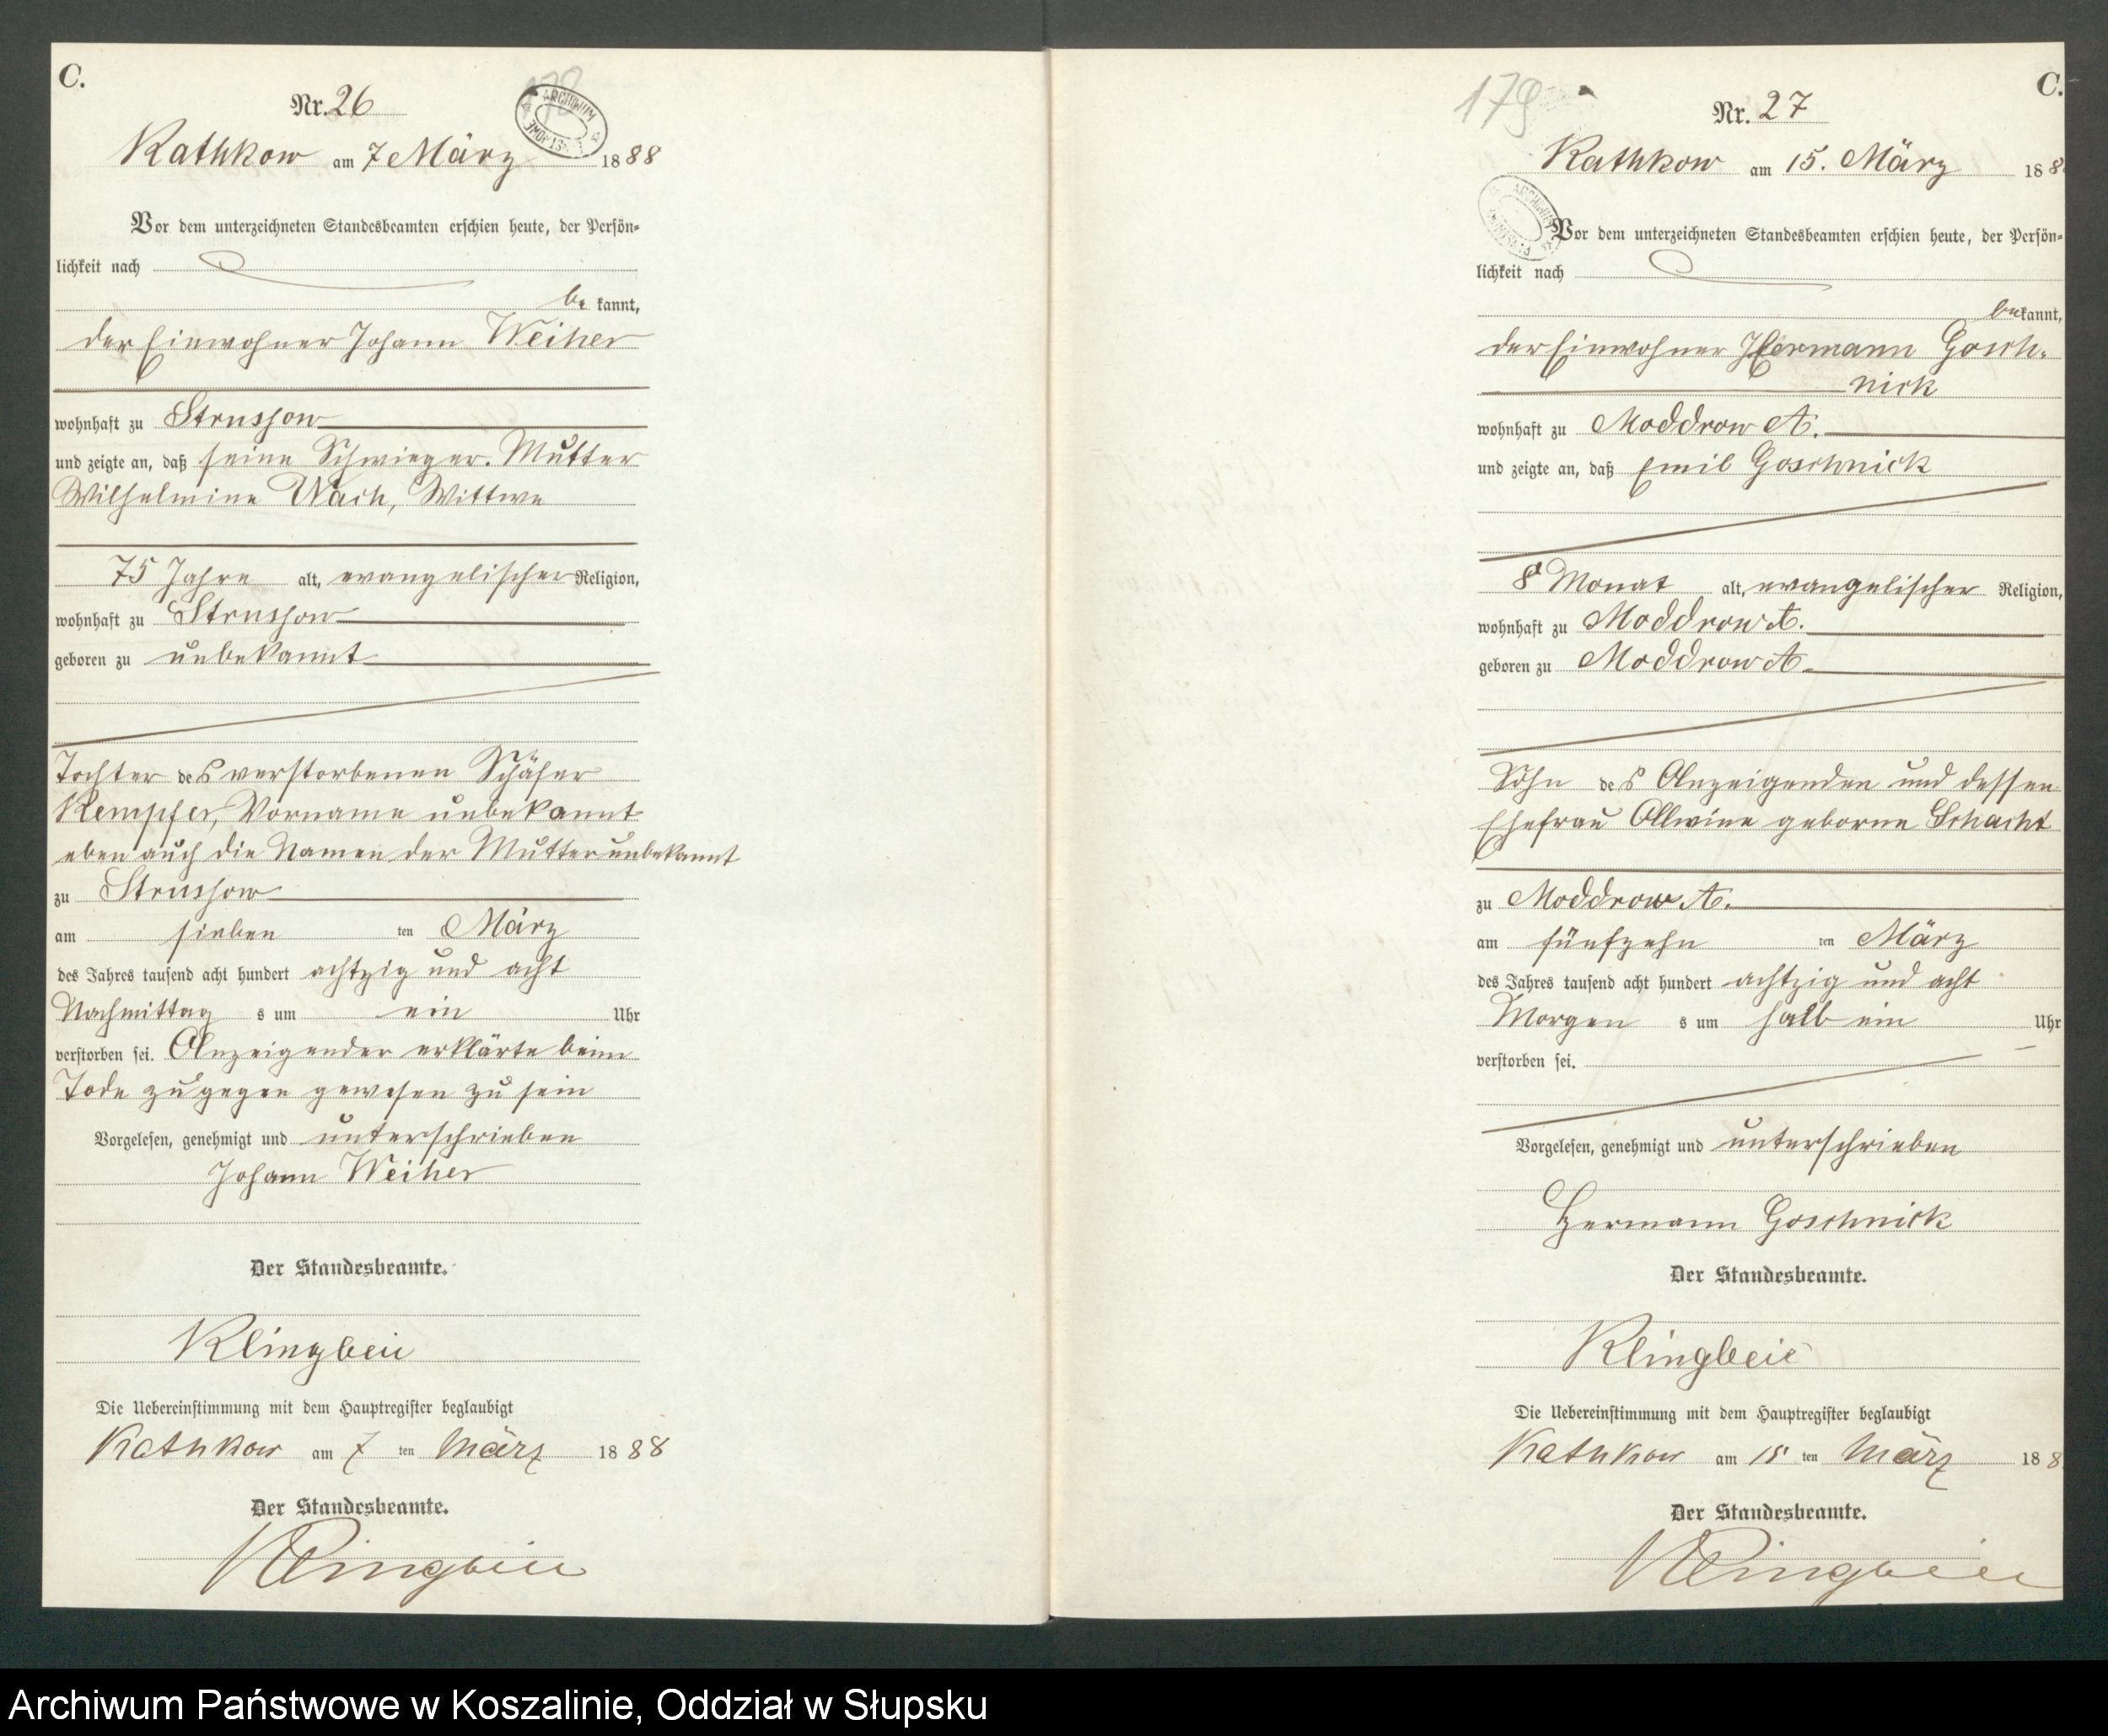 C.
178
Nr. 26
ARCHIWUM
Kathkow am 7 März 1888
Vor dem unterzeichneten Standesbeamten erschien heute, der Persön-
lichkeit nach
be kannt,
der Einwohner Johann Weiher
wohnhaft zu Strussow
und zeigte an, daß seine Schwieger-Mutter
Wilhelmine Wach, Wittwe
75 Jahre alt, evangelischer Religion,
wohnhaft zu Strussow
geboren zu unbekannt
Tochter des verstorbenen Schäfer
Kempfer, Vorname unbekannt
eben auch die Namen der Mutter unbekannt
zu Strussow
am sieben ten März
des Jahres tausend acht hundert achtzig und acht
Nachmittag s um ein Uhr
verstorben sei. Anzeigender erklärte beim
Tode zugegen gewesen zu sein
Vorgelesen, genehmigt und unterschrieben
Johann Weiher
Der Standesbeamte.
Klingbeil
Die Uebereinstimmung mit dem Hauptregister beglaubigt
Kathkow am 7 ten März 1888
Der Standesbeamte.
Klingbeil
C.
179
Nr. 27
Kathkow am 15. März 188
ARCHIWUM
Vor dem unterzeichneten Standesbeamten erschien heute, der Persön-
lichkeit nach
be kannt,
der Einwohner Hermann Gosch-
nick
wohnhaft zu Moddrow A.
und zeigte an, daß Emil Goschnick
8 Monat alt, evangelischer Religion,
wohnhaft zu Moddrow A.
geboren zu Moddrow A.
Sohn des Anzeigenden und dessen
Ehefrau Allwine geborne Schacht
zu Moddrow A.
am fünfzehn ten März
des Jahres tausend acht hundert achtzig und acht
Morgen s um halb ein Uhr
verstorben sei.
Vorgelesen, genehmigt und unterschrieben
Hermann Goschnick
Der Standesbeamte.
Klingbeil
Die Uebereinstimmung mit dem Hauptregister beglaubigt
Kathkow am 15 ten März 188
Der Standesbeamte.
Klingbeil
Archiwum Państwowe w Koszalinie, Oddział w Słupsku